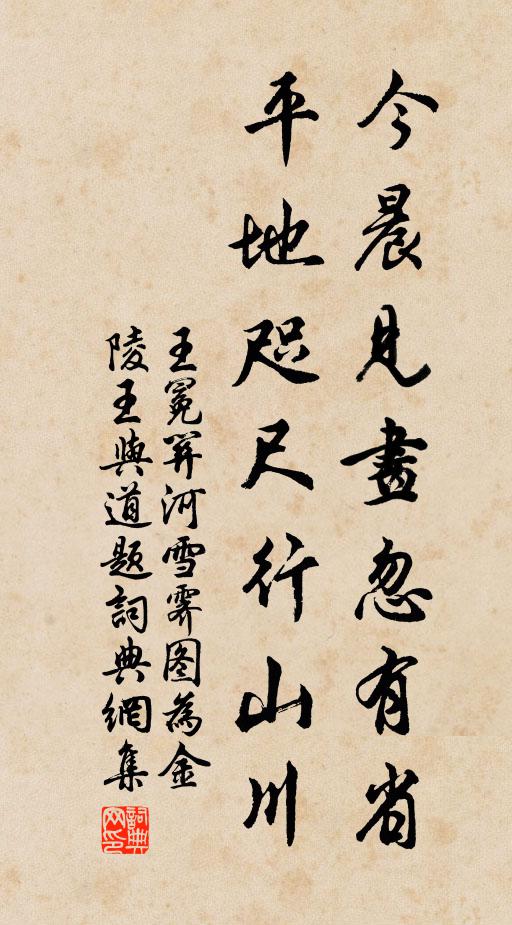 今晨見畫忽有省
平地咫尺行山川
王冕關河雪霽圖為金
陵王與道題詞典網集
詞典网印